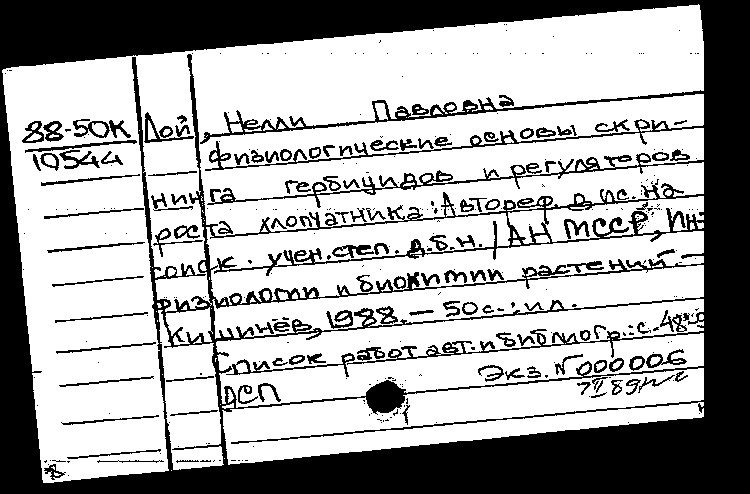 88-50К Лой, Нелли Павловна
10544 Физиологические основы скри-
нинга гербицидов и регуляторов
роста хлопчатника: Автореф. дис. на
соиск. учен. степ. д.б.н. / АН МССР, Ин-т
физиологии и биохимии растений. —
Кишинёв, 1988. — 50 с.: ил.
Список работ авт. и библиогр.: с. 48-
Экз. N 000006
ДСП